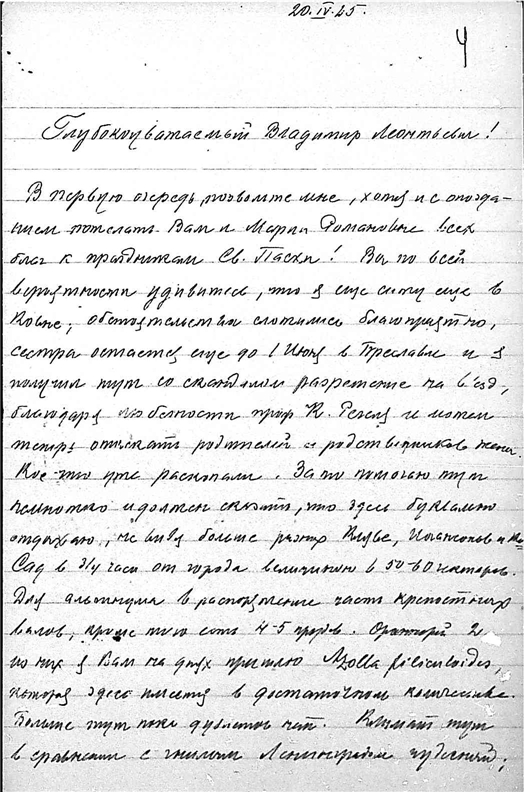 20.IV.25.
4
Глубокоуважаемый Владимир Леонтьевич!
В первую очередь позвольте мне, хотя и с опозда-
нием пожелать Вам и Марии Романовне всех
благ к праздникам Св. Пасхи! Вы по всей
вероятности удивитесь, что я еще сижу еще в
Ковне; обстоятельства сложились благоприятно,
сестра остается еще до 1 Июня в Преславле и я
получил тут со скандалом разрешение на в'езд,
благодаря любезности проф К. Регеля и можем
теперь отыскать родителей и родственников жены.
Кое-что уже раскопали. Зато помогаю тут
немного и должен сказать, что здесь буквально
отдыхаю, не видя больше разных
Сад в 3/4 часа от города величиною в 50-60 гекторов.
Для альпинума в распоряжение часть крепостных
валов, кроме того есть 4-5 прудов. Оранжерей 2
из них я Вам на днях пришлю Azolla filiculoides,
которая здесь имеется в достаточном количестве.
Больше тут пока дублетов нет. Климат тут
в сравнении с гнилым Ленинградом чудесный;